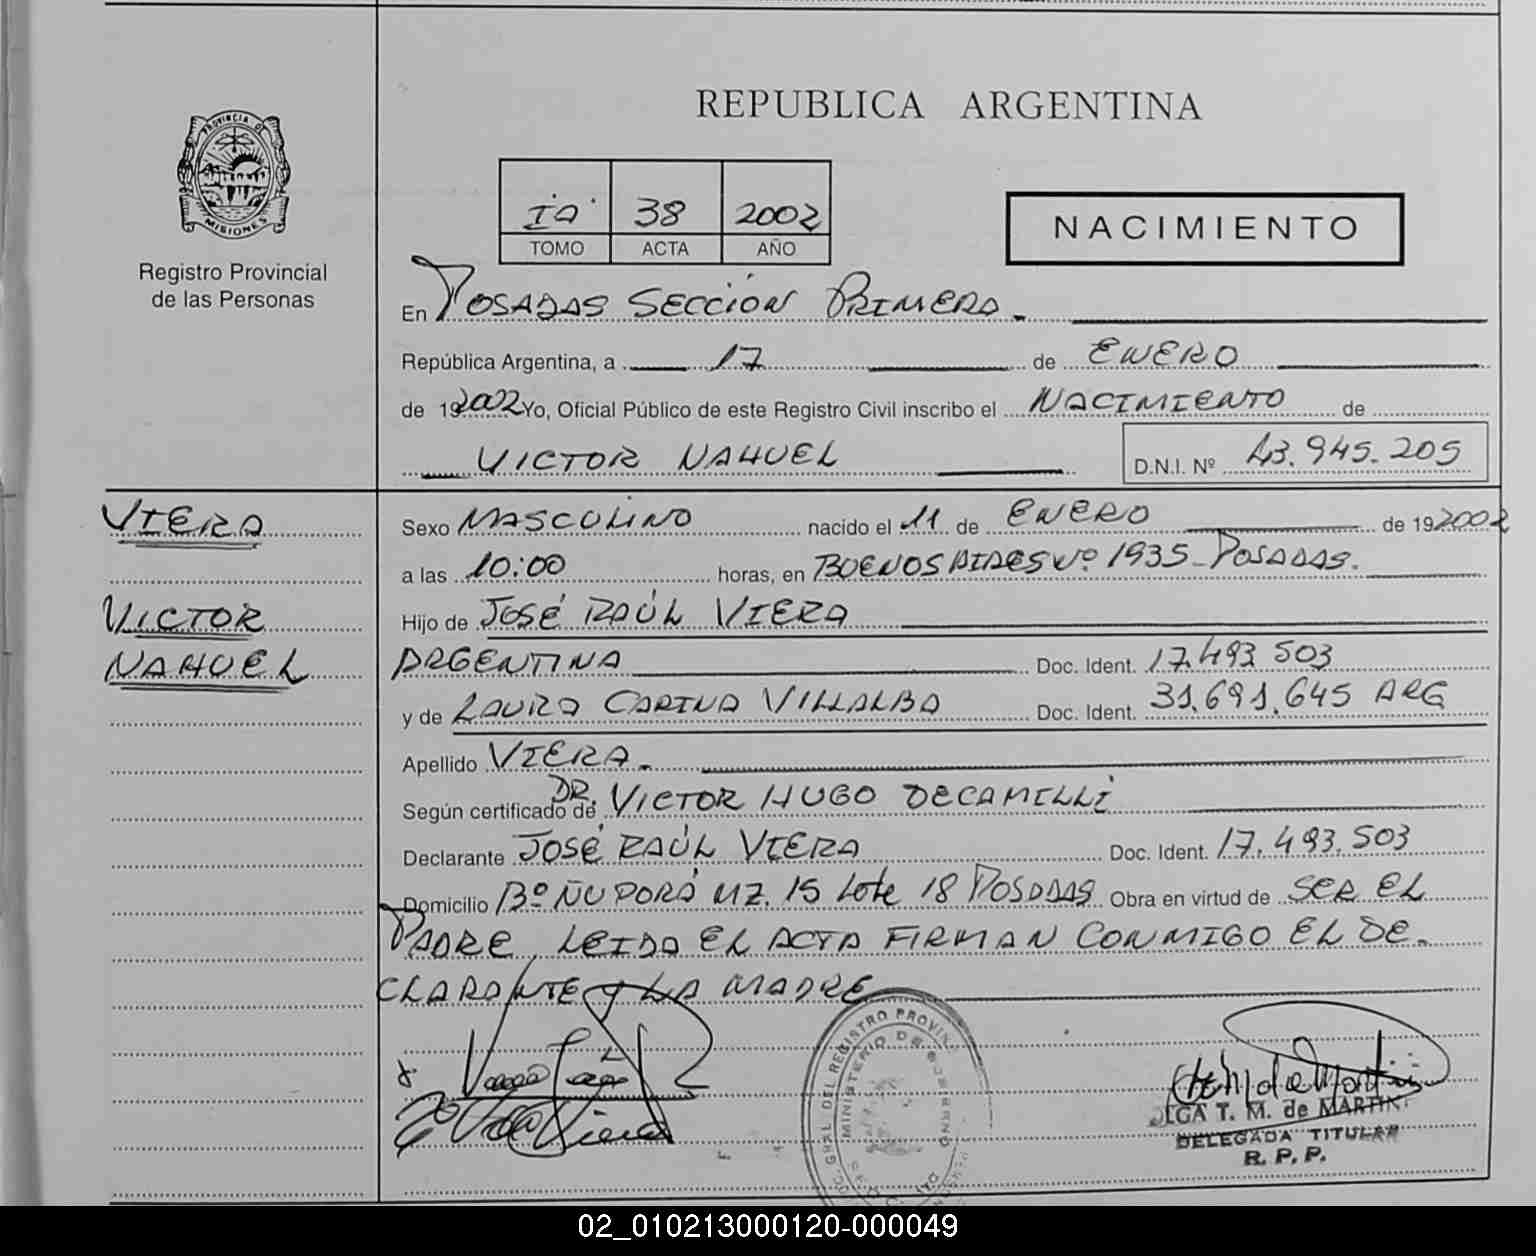 REPUBLICA ARGENTINA
PROVINCIA DE
MISIONES
Registro Provincial
de las Personas
Iº 38 2002
TOMO ACTA AÑO
NACIMIENTO
En POSADAS SECCIÓN PRIMERA.
República Argentina, a 17 de ENERO
de 192002 Yo, Oficial Público de este Registro Civil inscribo el NACIMIENTO de
VICTOR NAHUEL D.N.I. Nº 43.945.205
VIERA
Sexo MASCULINO nacido el 11 de ENERO de 192002
a las 10:00 horas, en BUENOS AIRES Nº 1935 - POSADAS.
VICTOR
Hijo de JOSÉ RAÚL VIERA
NAHUEL
ARGENTINA Doc. Ident. 17.493.503
y de LAURA CARINA VILLALBA Doc. Ident. 31.691.645 ARG
Apellido VIERA.
Según certificado de DR. VICTOR HUGO DECAMILLI
Declarante JOSÉ RAÚL VIERA Doc. Ident. 17.493.503
Domicilio Bº ÑU PORÁ MZ. 15 Lote 18 POSADAS Obra en virtud de SER EL
PADRE, LEIDA EL ACTA FIRMAN CONMIGO EL DE-
CLARANTE Y LA MADRE
GRAL. DEL REGISTRO PROVIN
MINISTERIO DE GOBIERNO
OLGA T. M. de MARTIN
DELEGADA TITULAR
R. P. P.
02_010213000120-000049